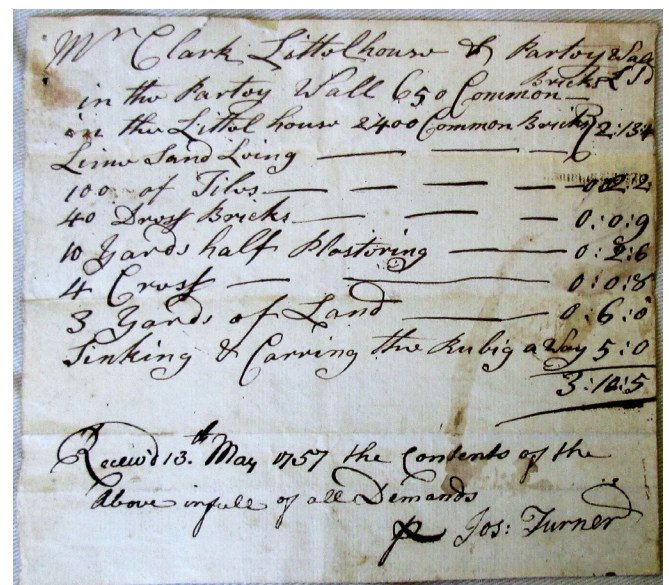 Mr Clark Littolhouse & Partoy Wall
Bricks L S d
in the Partoy Wall 650 Common
in the Littol house 2400 Common Bricks 2:13:4
Lime Sand Loing
100 of Tilos 0:2:2
40 Drosf Bricks 0:0:9
10 Yards half Plostoring 0:2:6
4 Crosf 0:0:8
3 Yards of Land 0:6:0
Sinking & Carring the Rubig a Way 5:0
3:10:5
Receivd 13.th May 1757 the Contents of the
Above in full of all Demands
Jos: Turner